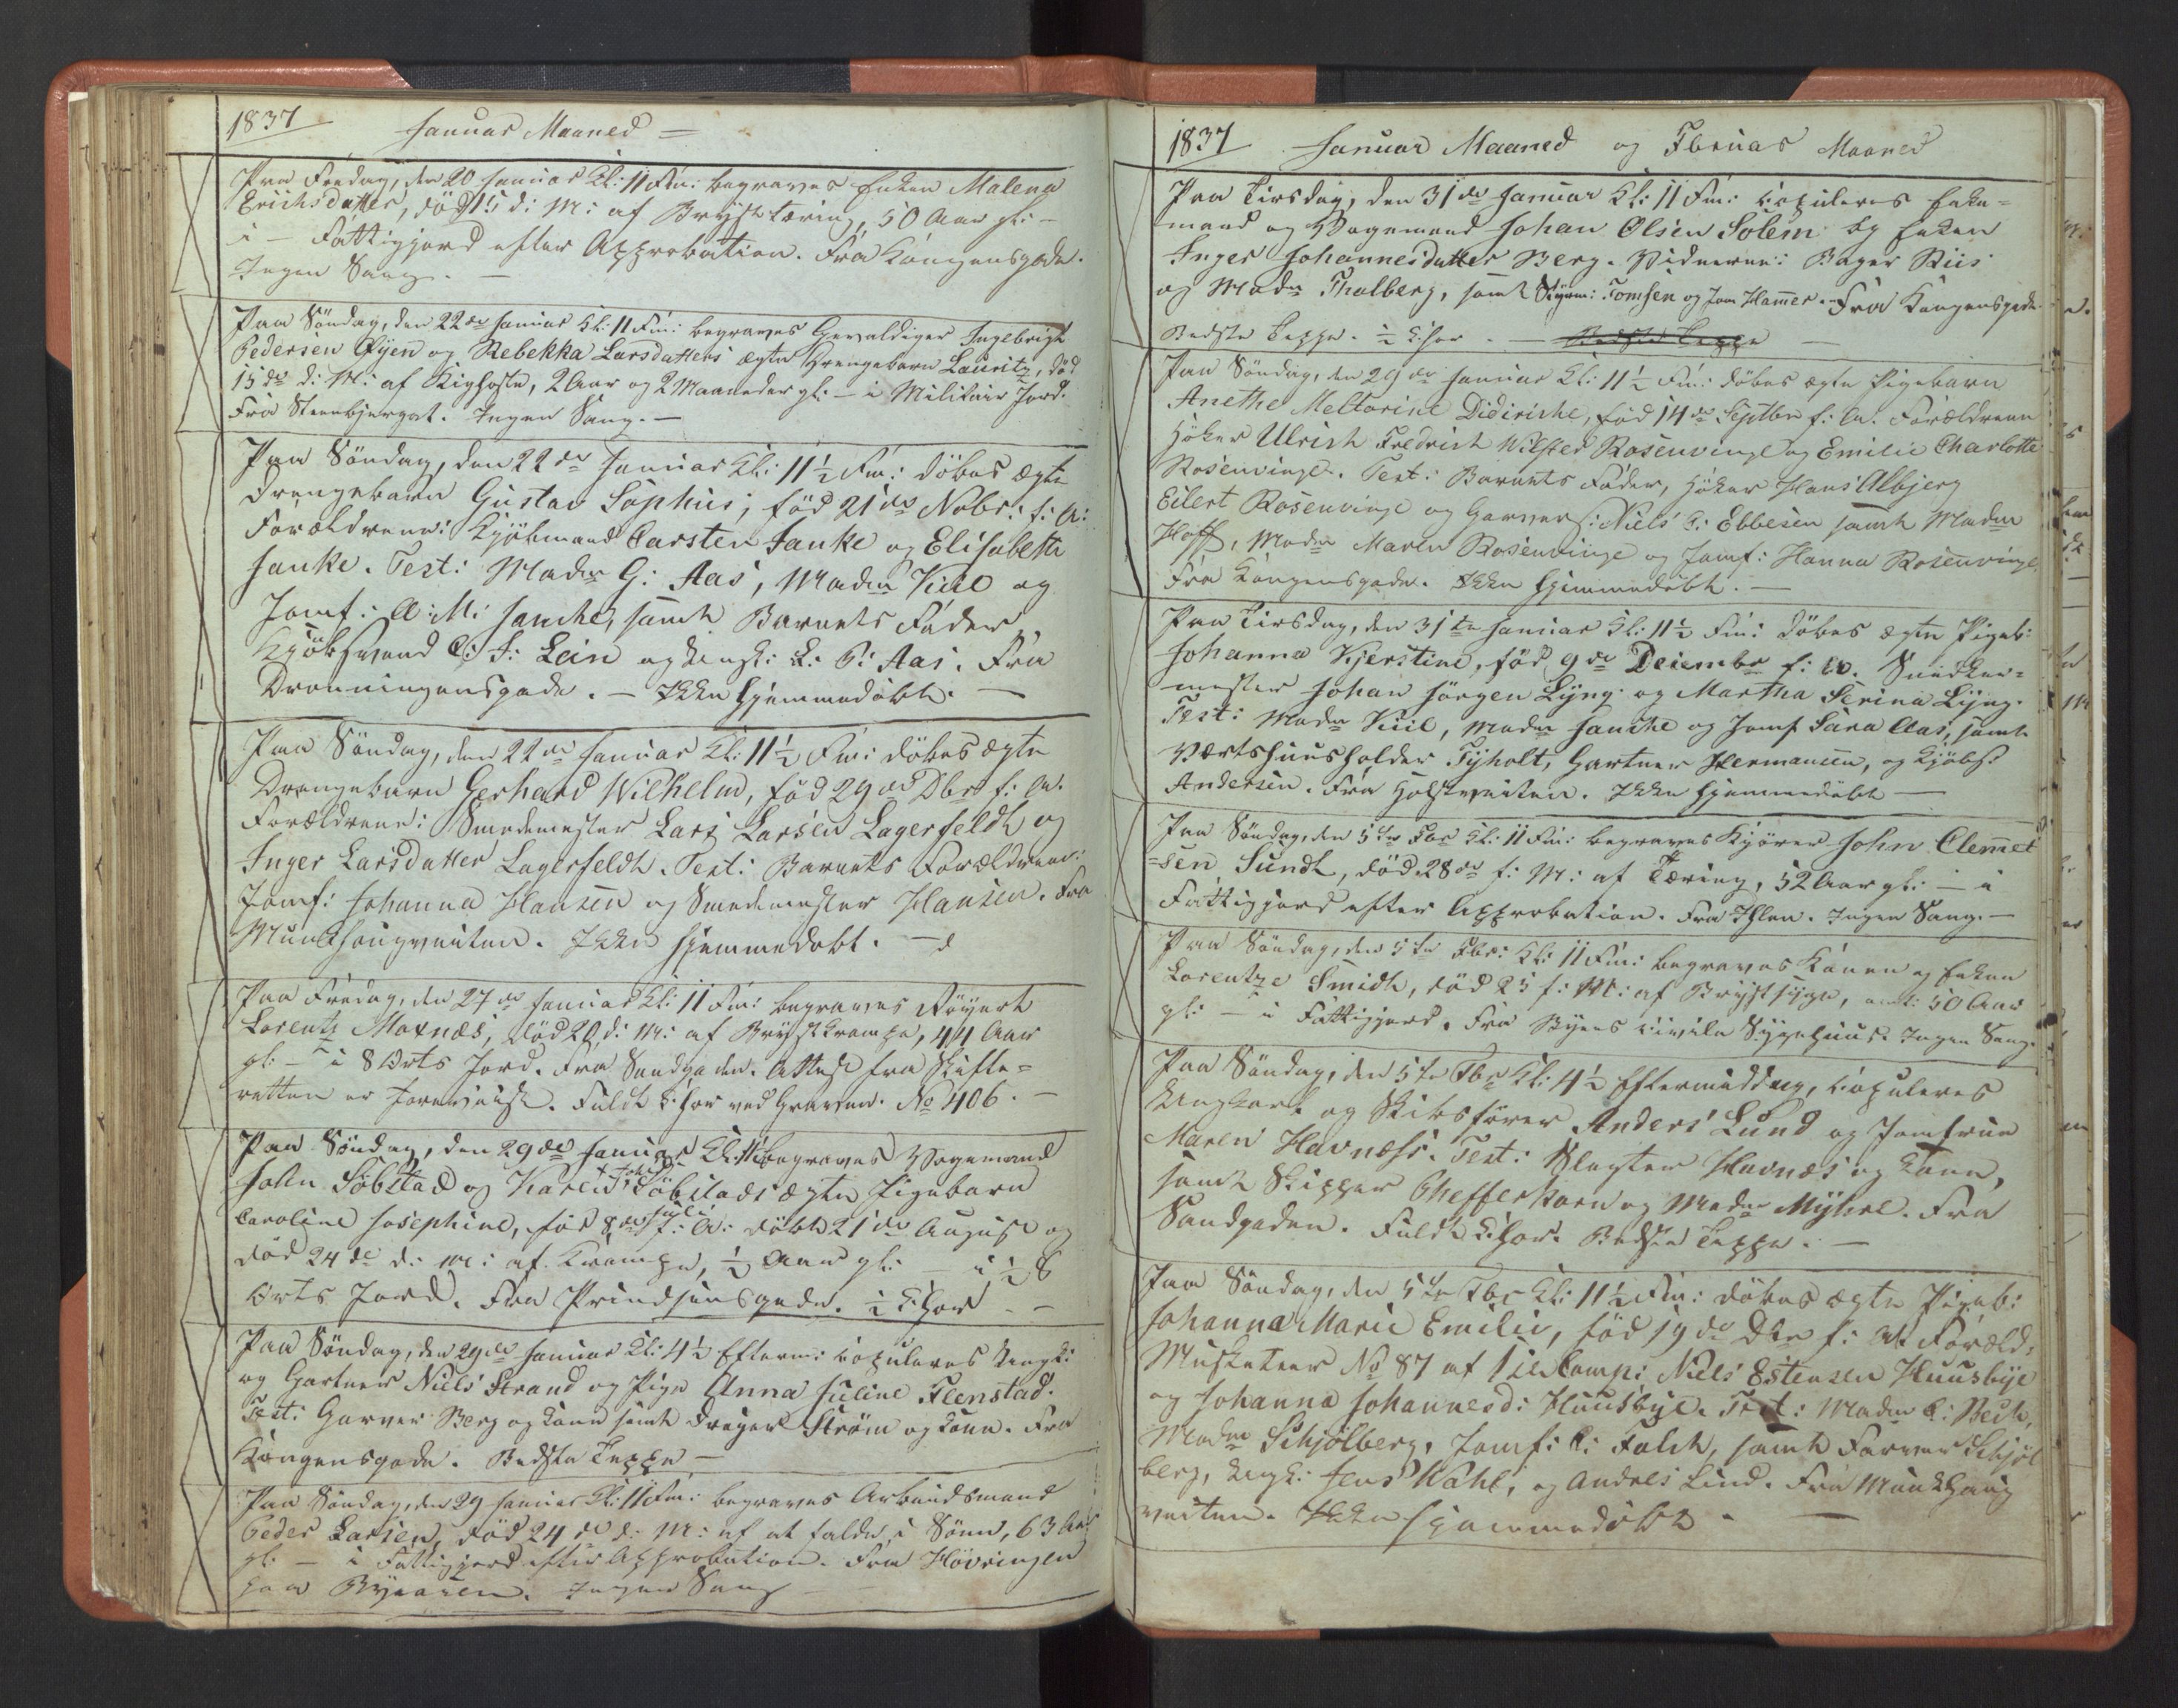 1837 Januar Maaned
Paa Fredag, den 20 Januar Kl: 11 Fm: begraves Enken Malena
Erichsdatter, død 15 d: M: af Brysttæring, 50 Aar gl: -
i - Fattigjord efter Approbation. Fra Kongensgade.
Ingen Sang. -
Paa Söndag, den 22de Januar Kl: 11 Fm: begraves Gevaldiger Ingebrigt
Pedersen Øyen og Rebekka Larsdatters ægte Drengebarn Lauritz, död
15de d: M: af Kighoste, 2 Aar og 2 Maaneder gl: - i Militair Jord.
Fra Steenbjerget. Ingen Sang. -
Paa Söndag, den 22de Januar Kl: 11½ Fm: döbes ægte
Drengebarn Gustav Sophus, föd 21de Nobr: f: A:
Forældrene: Kjöbmand Carsten Janke og Elisabeth
Janke. Test: Madm G: Aas, Madm Kiil og
Jomf: A: M: Janche, samt Barnets Fader
Kjöbmand C: J: Lein og L: P: Aas. Fra
Dronningensgade. - Ikke hjemmedöbt. -
Paa Söndag, den 22de Januar Kl: 11½ Fm: döbes ægte
Drengebarn Gerhard Wilhelm, föd 29de Dbr f: A.
Forældrene: Smedemester Lars Larsen Lagerfeldt og
Inger Larsdatter Lagerfeldt. Test: Barnets Forældrene:
Jomf: Johanna Hansen og Smedemester Hansen. Fra
Munkhaugveiten. Ikke hjemmedöbt. -
Paa Fredag, den 27de Januar Kl: 11 Fm: begraves
Lorentz Moxnæs, död 20 d: M: af Brystkrampe, 44 Aar
gl: - i 8 Orts Jord. Fra Sandgaden. Attest fra Skifte-
retten er foreviist. Fuldt Chor ved Graven. No 406. -
Paa Söndag, den 29de Januar Kl: 11 begraves Vognmand
John Söbstad og Karen Söbstads ægte Pigebarn
Caroline Josephine, föd 8de Juli f: A: döbt 21de August og
död 24de d: M: af Krampe, ½ Aar gl: - i ½ 8
Orts Jord. Fra Prindsensgade. ½ Chor - -
Paa Söndag, den 29de Januar Kl: 4½ Efterm: copuleres Ungk:
og Gartner Niels Strand og Pige Anna Juline Flenstad.
Test: Garver Berg og Kone samt Dreyer Ström og Kone. Fra
Kongensgade. Bedste Teppe -
Paa Söndag, den 29 Januar Kl: 11 Fm: begraves Arbeidsmand
Peder Larsen, död 24de d: M: af at falde i Söen, 63 Aar
gl: - i Fattigjord efter Approbation. Fra Hövringen
paa Byaasen. Ingen Sang
1837 Januar Maaned og Fbruar Maaned
Paa Tirsdag, den 31de Januar Kl: 11 Fm: copuleres Enke-
mand og Vognmand Johan Olsen Solem og Enken
Inger Johannesdatter Berg. Vidnerne: Bager Riis
og Madm Thalberg, samt Styrm: Tomsen og Joen Hammer. Fra Kongensgade
Bedste Teppe. ½ Chor. - Bedste Teppe -
Paa Söndag, den 29de Januar Kl: 11½ Fm: döbes ægte Pigebarn
Anethe Meltorine Didiriche, föd 14de Septbr f: A. Forældrene
Höker Ulrich Fredrich Wilster Rosenvinge og Emilie Charlotte
Rosenvinge. Test: Barnets Fader, Höker Hans Albjerg
Eilert Rosenvinge og Garvers: Niels C: Ebbesen samt Madm
Hoff, Madm Maren Rosenvinge og Jomf: Hanna Rosenvinge
Fra Kongensgade. Ikke hjemmedöbt. -
Paa Tirsdag, den 31te Januar Kl: 11½ Fm: döbes ægte Pigeb:
Johanna Kjerstine, föd 9de Decembr f: A. Snedker-
mester Johan Jörgen Lyng og Martha Serina Lyng.
Test: Madm Kiil, Madm Janche og Jomf Sara Aas, samt
Værtshuusholder Tyholt, Gartner Hermansen, og Kjöbm:
Andersen. Fra Holstveiten. Ikke hjemmedöbt -
Paa Söndag, den 5te Fbr Kl: 11 Fm: begraves Kjörer John Clemet
-sen Sundt, död 28de f: M: af Tæring, 52 Aar gl: - i
Fattigjord efter Approbation. Fra Ihlen. Ingen Sang. -
Paa Söndag, den 5te Fbr: Kl: 11 Fm: begraves Konen og Enken
Lorentze Smidt, död 25 f: M: af Brystsyge, 50 Aar
gl: - i Fattigjord. Fra Byens civile Sygehuus. Ingen Sang.
Paa Söndag, den 5te Fbr Kl: 4½ Eftermiddag, copuleres
Ungkarl og Skibsförer Anders Lund og Jomfrue
Maren Havnæss. Test: Slagter Havnæs og Kone,
samt Skipper Ghefferkorn og Madm Myhre. Fra
Sandgaden. Fuldt Chor. Bedste Teppe. -
Paa Söndag, den 5te Fbr Kl: 11½ Fm: döbes ægte Pigeb:
Johanna Marie Emilie, föd 19de Dbr f: A: Foræld:
Musketeer No 87 af Comp: Niels Estensen Huusbye
og Johanna Johannesd: Huusbye. Test: Madm C: Bech,
Madm Schjölberg, Jomf: C: Falck, samt Farver Schjöl
berg, Ungk: Jens Kahl, og Andreas Lind. Fra Munkhaug
veiten. Ikke hjemmedöbt. -